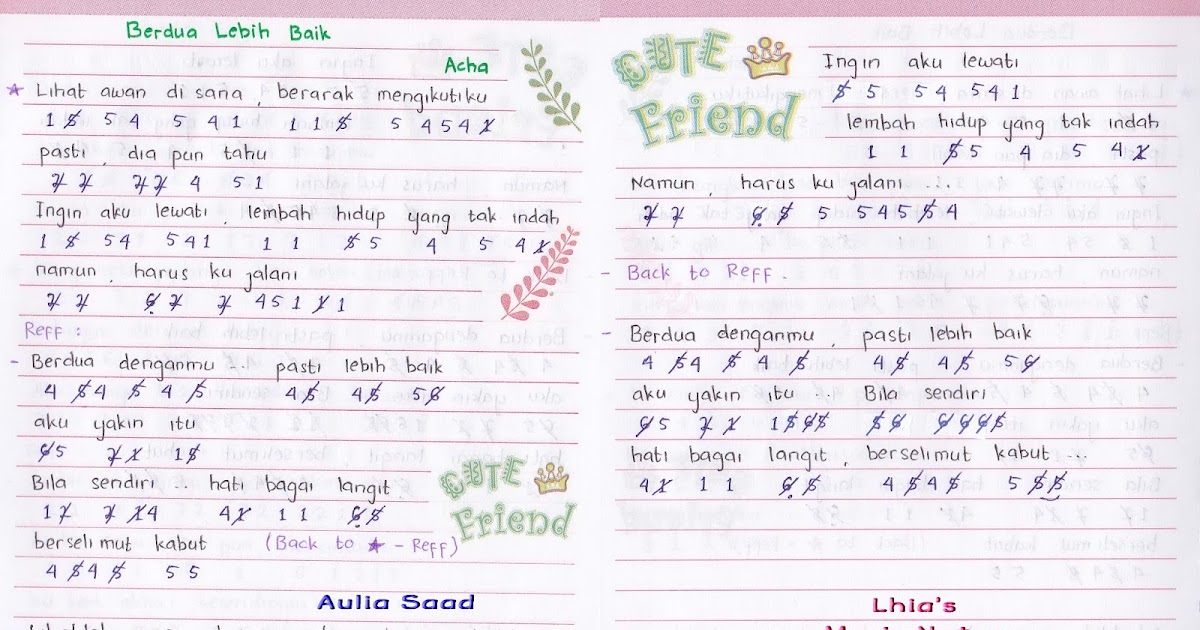 Berdua Lebih Baik
Acha
★ Lihat awan di sana, berarak mengikutiku
1 5 5 4 5 4 1 1 1 5 5 4 5 4 1
pasti, dia pun tahu
7 7 7 7 4 5 1
Ingin aku lewati lembah hidup yang tak indah
1 5 5 4 5 4 1 1 1 5 5 4 5 4 1
namun, harus ku jalani
7 7 6 7 7 4 5 1 1 1
Reff :
- Berdua denganmu ... pasti lebih baik
4 5 4 5 4 5 4 5 4 5 5 6
aku yakin itu
6 5 7 1 1 5
Bila sendiri ... hati bagai langit
1 7 7 1 4 4 1 1 1 6 5
berselimut kabut (Back to ★ - Reff)
4 5 4 5 5 5
Aulia Saad
CUTE
Friend
CUTE
Friend
Ingin aku lewati
5 5 5 4 5 4 1
lembah hidup yang tak indah
1 1 5 5 4 5 4 1
Namun harus ku jalani ....
7 7 6 5 5 5 4 5 5 4
- Back to Reff.
- Berdua denganmu, pasti lebih baik
4 5 4 5 4 5 4 5 4 5 5 6
aku yakin itu Bila sendiri
6 5 7 1 1 5 6 5 5 6 6 6 6 5
hati bagai langit, berselimut kabut ....
4 1 1 1 6 5 4 5 4 5 5 5 5
Lhia's